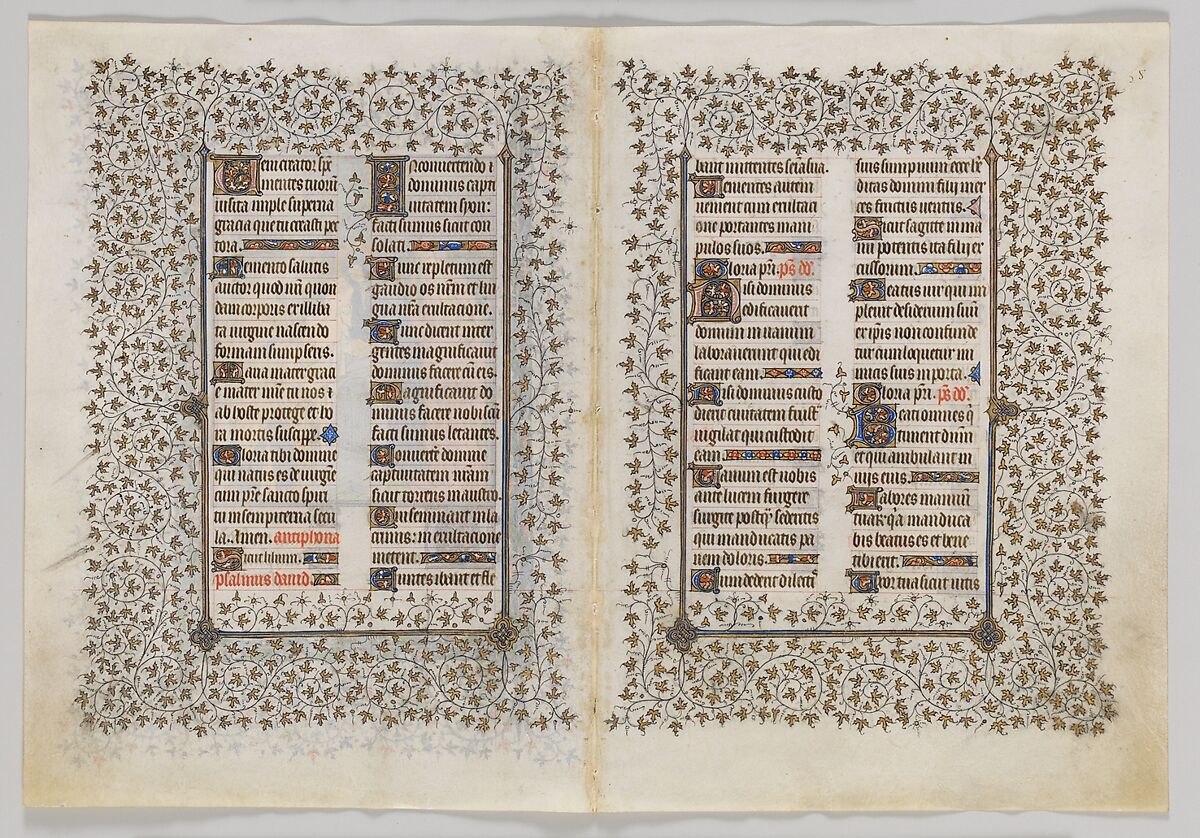 Veni creator sp̄c
mentes tuorū
visita imple superna
gracia que tu creasti pe
tora.
Memento salutis
auctor quod nr̄i quon
dam corporis ex illiba
ta virgine nascendo
formam sumpseris.
Maria mater graci
e mater mīe tu nos
ab hoste protege et ho
ra mortis suscipe.
Gloria tibi domine
qui natus es de virgīe
cum pr̄e sancto spiri
tu in sempiterna secu
la. Amen. antiphona
Sicut lilium.
psalmus david.
In convertendo
dominus capti
vitatem syon:
facti sumus sicut con
solati.
Tunc repletum est
gaudio os nr̄m et lin
gua nr̄a exultacione.
Tunc dicent inter
gentes magnificavit
dominus facere cū eis.
Magnificavit do
minus facere nobiscū
facti sumus letantes.
Converte domine
captivitatem nr̄am
sicut torrens in austro.
Qui seminant in la
crimis: in exultacione
metent.
Euntes ibant et fle
bant mittentes semina sua.
Venientes autem
venient cum exultaci
one portantes mani
pulos suos.
Gloria pr̄i. ps̄ dd̄.
Nisi dominus
edificaverit
domum in vanum
laboraverunt qui edi
ficant eam.
Nisi dominus custo
dierit civitatem frustᵃ
vigilat qui custodit
eam.
Vanum est nobis
ante lucem surgere
surgite postqᵃ sederitis
qui manducatis pa
nem doloris.
Cum dederit dilectis
suis sumpnum ecce he
ditas domini filij mer
ces fructus ventris.
Sicut sagite in ma
nu potentis ita filij ex
cussorum.
Beatus vir qui im
plevit desiderium suū
ex ipis non confunde
tur cum loquetur ini
micis suis in porta.
Gloria pr̄i. ps̄ dd̄.
Beati omnes qͥ
timent dn̄m
et qui ambulant in
viis eius.
Labores manuū
tuaꝝ qᵃ manduca
bis beatus es et bene
tibi erit.
Uxor tua sicut vitis